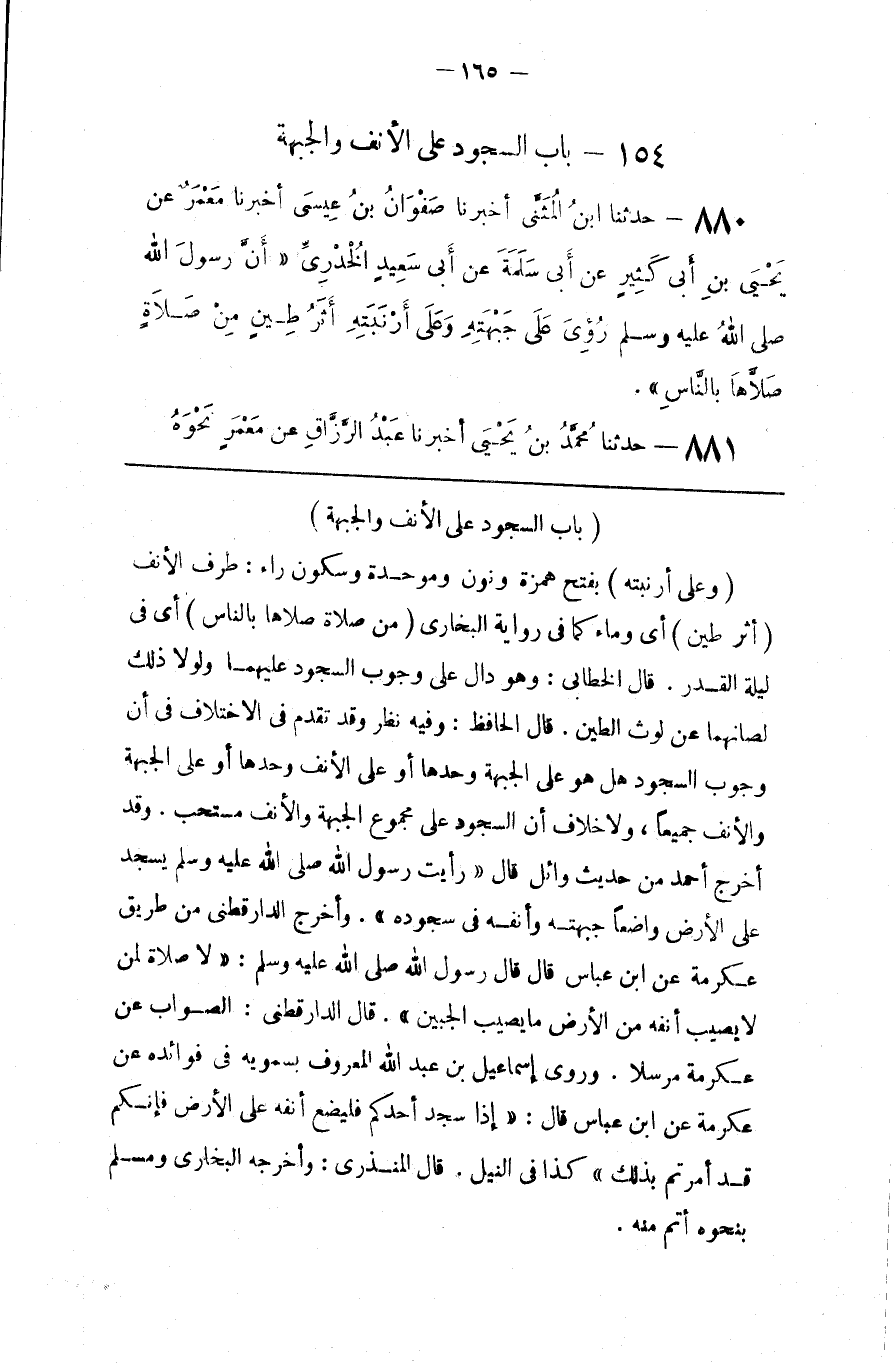 — ١٦٥ —
١٥٤ — باب السجود على الأنف والجبهة
٨٨٠ — حدثنا ابنُ الْمُثَنَّى أخبرنا صَفْوَانُ بنُ عِيسَى أخبرنا مَعْمَرٌ عن
يَحْيَى بنِ أَبى كَثِيرٍ عن أَبى سَلَمَةَ عن أَبى سَعِيدٍ الْخُدْرِىِّ « أَنَّ رسولَ الله
صلى اللهُ عليه وسلم رُؤِىَ عَلَى جَبْهَتِهِ وَعَلَى أَرْنَبَتِهِ أَثَرُ طِينٍ مِنْ صَلاَةٍ
صَلاَّهَا بالنَّاسِ » .
٨٨١ — حدثنا مُحمَّدُ بنُ يَحْيَى أخبرنا عَبْدُ الرَّزَّاقِ عن مَعْمَرٍ نَحْوَهُ
( باب السجود على الأنف والجبهة )
( وعلى أرنبته ) بفتح همزة ونون وموحدة وسكون راء : طرف الأنف
( أثر طين ) أى وماء كما فى رواية البخارى ( من صلاة صلاها بالناس ) أى فى
ليلة القدر . قال الخطابى : وهو دال على وجوب السجود عليهما ولولا ذلك
لصانهما عن لوث الطين . قال الحافظ : وفيه نظر وقد تقدم فى الاختلاف فى أن
وجوب السجود هل هو على الجبهة وحدها أو على الأنف وحدها أو على الجبهة
والأنف جميعاً ، ولاخلاف أن السجود على مجموع الجبهة والأنف مستحب . وقد
أخرج أحمد من حديث وائل قال « رأيت رسول الله صلى الله عليه وسلم يسجد
على الأرض واضعاً جبهته وأنفه فى سجوده » . وأخرج الدارقطنى من طريق
عكرمة عن ابن عباس قال قال رسول الله صلى الله عليه وسلم : « لا صلاة لمن
لايصيب أنفه من الأرض مايصيب الجبين » . قال الدارقطنى : الصواب عن
عكرمة مرسلا . وروى إسماعيل بن عبد الله المعروف بسمويه فى فوائده عن
عكرمة عن ابن عباس قال : « إذا سجد أحدكم فليضع أنفه على الأرض فإنكم
قد أمرتم بذلك » كذا فى النيل . قال المنذرى : وأخرجه البخارى ومسلم
بنحوه أتم منه .